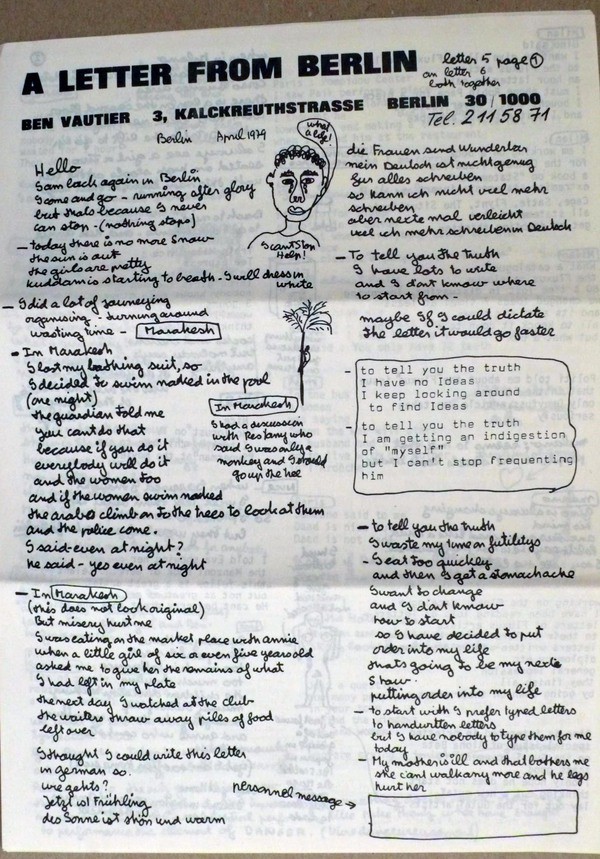 A LETTER FROM BERLIN
letter 5 page 1
on letter 6
both together
BEN VAUTIER 3, KALCKREUTHSTRASSE BERLIN 30/1000
Tel. 211 58 71
Berlin April 1979
what a life!
I cant Stop
Help!
Hello
I am back again in Berlin
I come and go - running after glory
but thats because I never
can stop - (nothing stops)
- today there is no more snow
the sun is out
the girls are pretty
kuddam is starting to breath - I will dress in
white
- I did a lot of journeying
organising - turning around
wasting time - Marakesh
- In Marakesh
I lost my bathing suit, so
I decided to swim naked in the pool
(one night)
the guardian told me
you cant do that
because if you do it
everybody will do it
and the women too
and if the women swim naked
the arabs climb on to the trees to look at them
and the police come.
I said - even at night?
he said - yes even at night
In Marakesh
I had a discussion
with Restany who
said I was only a
monkey and I should
go up the tree
- In Marakesh
(this does not look original)
But misery hurt me
I was eating on the market place with annie
when a little girl of six or even five years old
asked me to give her the remains of what
I had left in my plate
the next day I watched at the club
the waiters throw away pilles of food
left over
I thought I could write this letter
in German so.
wie gehts?
Jetzt ist Frühling
des Sonne ist shön und warm
die Frauen sind Wunderbar
mein Deutsch ist nicht genug
für alles schreiben
so kann ich nicht viel mehr
schreiben
aber nexte mal verleicht
viel ich mehr schreiben in Deutsch
- To tell you the truth
I have lots to write
and I d'ont know where
to start from -
maybe If I could dictate
the letter it would go faster
- to tell you the truth
I have no Ideas
I keep looking around
to find Ideas
- to tell you the truth
I am getting an indigestion
of "myself"
but I can't stop frequenting
him
- to tell you the truth
I waste my time on futilitys
- I eat too quickley
and then I get a stomachache
I want to change
and I d'ont know
how to start
so I have decided to put
order into my life
thats going to be my nexte
show.
putting order into my life
- to start with I prefer typed letters
to handwritten letters
but I have nobody to type them for me
today
- My mother is ill and that bothers me
she can't walk any more and he legs
hurt her
personnel message →